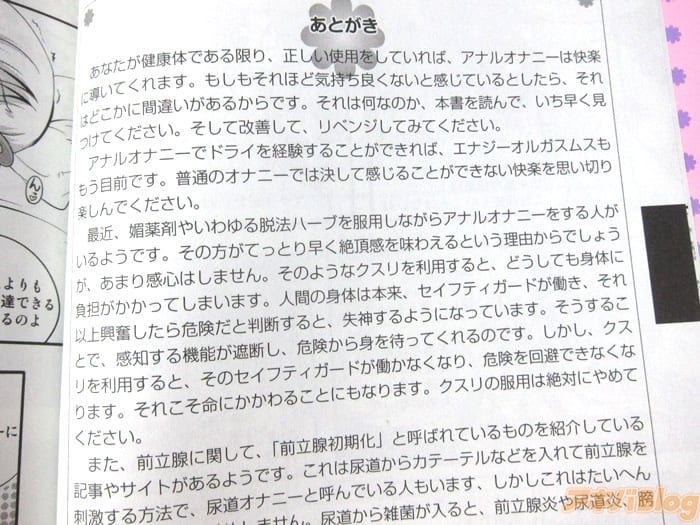 あとがき
あなたが健康体である限り、正しい使用をしていれば、アナルオナニーは快楽
に導いてくれます。もしもそれほど気持ち良くないと感じているとしたら、それ
はどこかに間違いがあるからです。それは何なのか、本書を読んで、いち早く見
つけてください。そして改善して、リベンジしてみてください。
アナルオナニーでドライを経験することができれば、エナジーオルガスムスも
もう目前です。普通のオナニーでは決して感じることができない快楽を思い切り
楽しんでください。
最近、媚薬剤やいわゆる脱法ハーブを服用しながらアナルオナニーをする人が
いるようです。その方がてっとり早く絶頂感を味わえるという理由からでしょう
が、あまり感心はしません。そのようなクスリを利用すると、どうしても身体に
負担がかかってしまいます。人間の身体は本来、セイフティガードが働き、それ
以上興奮したら危険だと判断すると、失神するようになっています。そうするこ
とで、感知する機能が遮断し、危険から身を待ってくれるのです。しかし、クス
リを利用すると、そのセイフティガードが働かなくなり、危険を回避できなくな
ります。それこそ命にかかわることにもなります。クスリの服用は絶対にやめて
ください。
また、前立腺に関して、「前立腺初期化」と呼ばれているものを紹介している
記事やサイトがあるようです。これは尿道からカテーテルなどを入れて前立腺を
刺激する方法で、尿道オナニーと呼んでいる人もいます、しかしこれはたいへん
しません。尿道から雑菌が入ると、前立腺炎や尿道炎、膀
よりも
達できる
るのよ
ーに